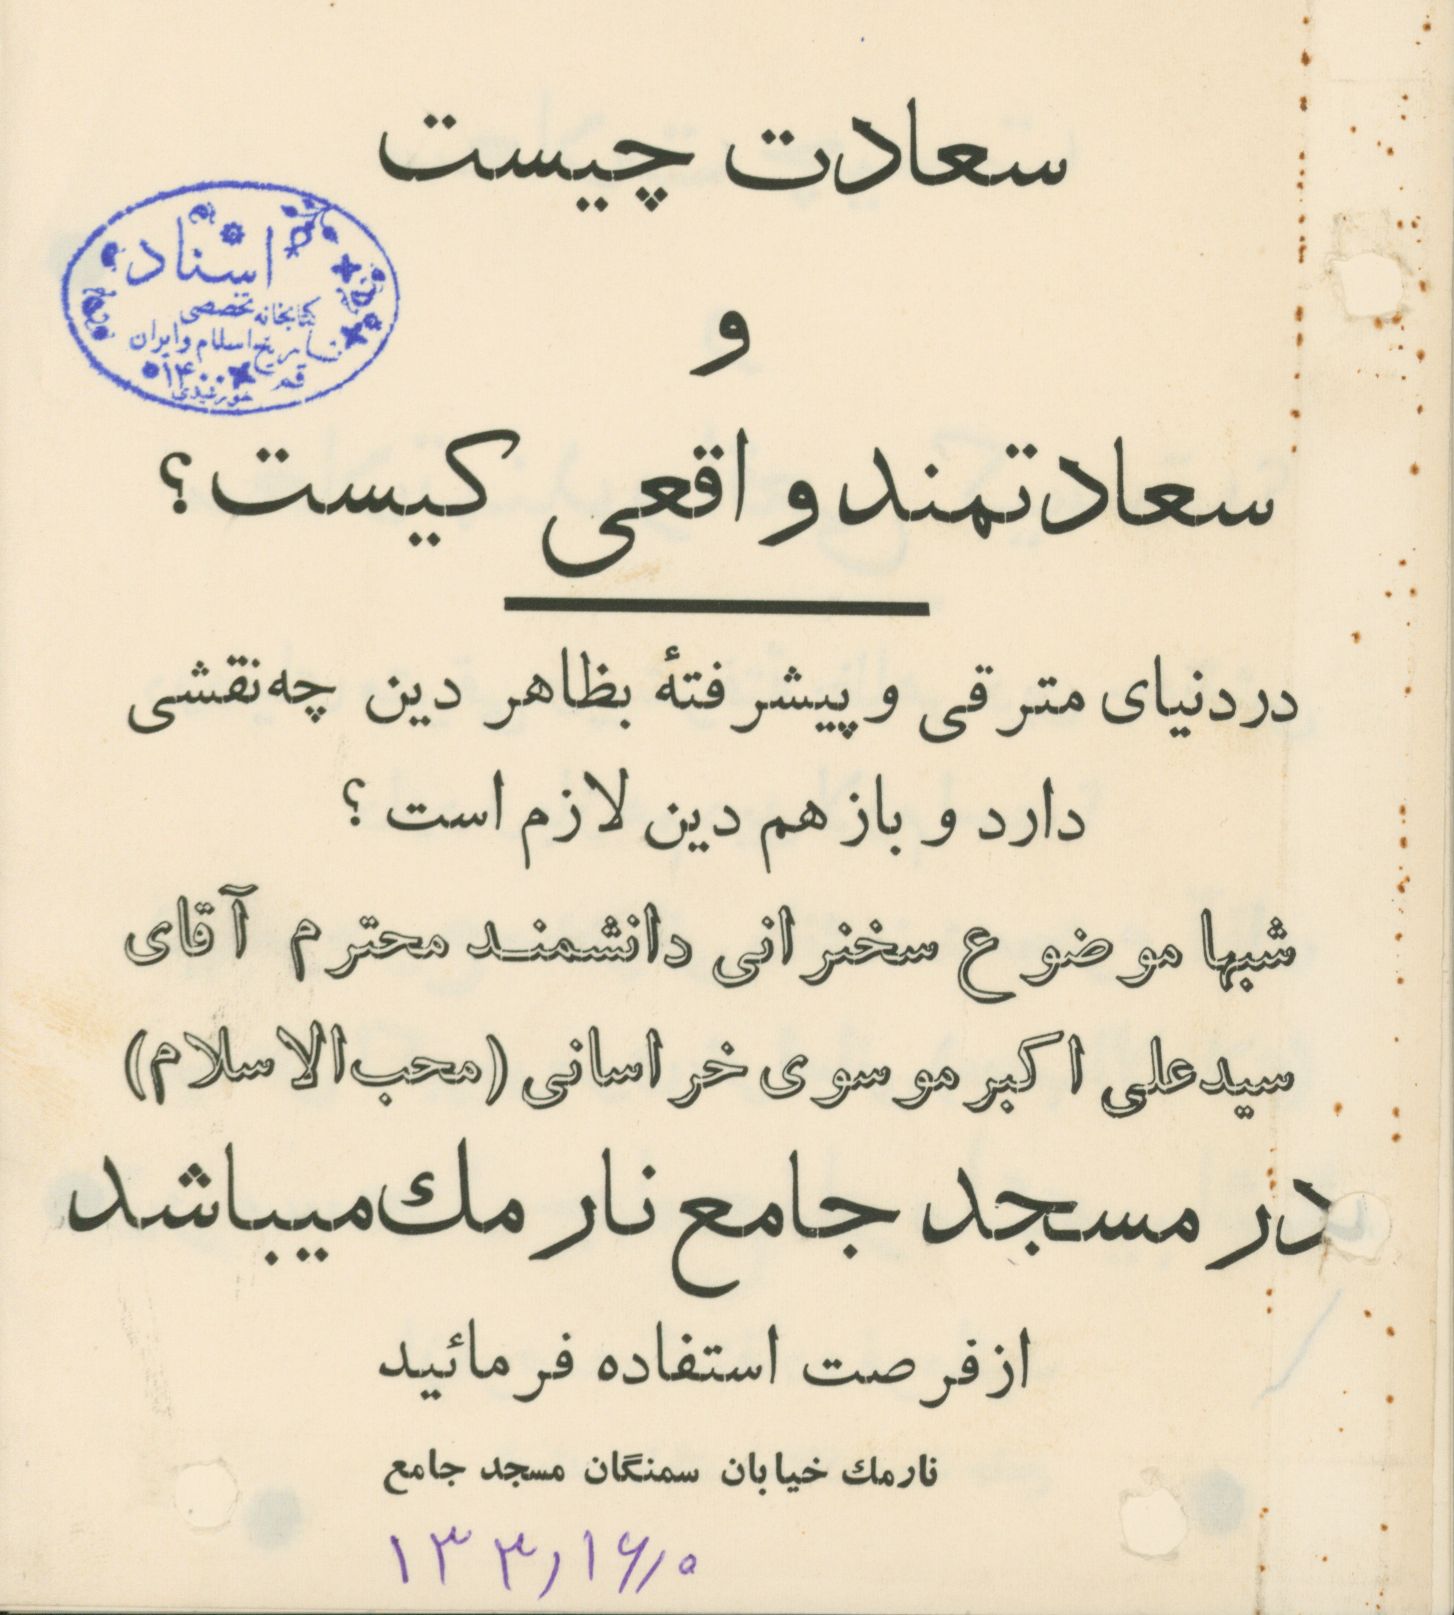 سعادت چیست
و
سعادتمند واقعی کیست؟
در دنیای مترقی و پیشرفتهٔ بظاهر دین چه نقشی
دارد و باز هم دین لازم است؟
شبها موضوع سخنرانی دانشمند محترم آقای
سید علی اکبر موسوی خراسانی (محب‌الاسلام)
در مسجد جامع نارمك میباشد
از فرصت استفاده فرمائید
نارمك خیابان سمنگان مسجد جامع
اسناد
کتابخانه تخصصی
تاریخ اسلام و ایران
قم ۱۴۰۰